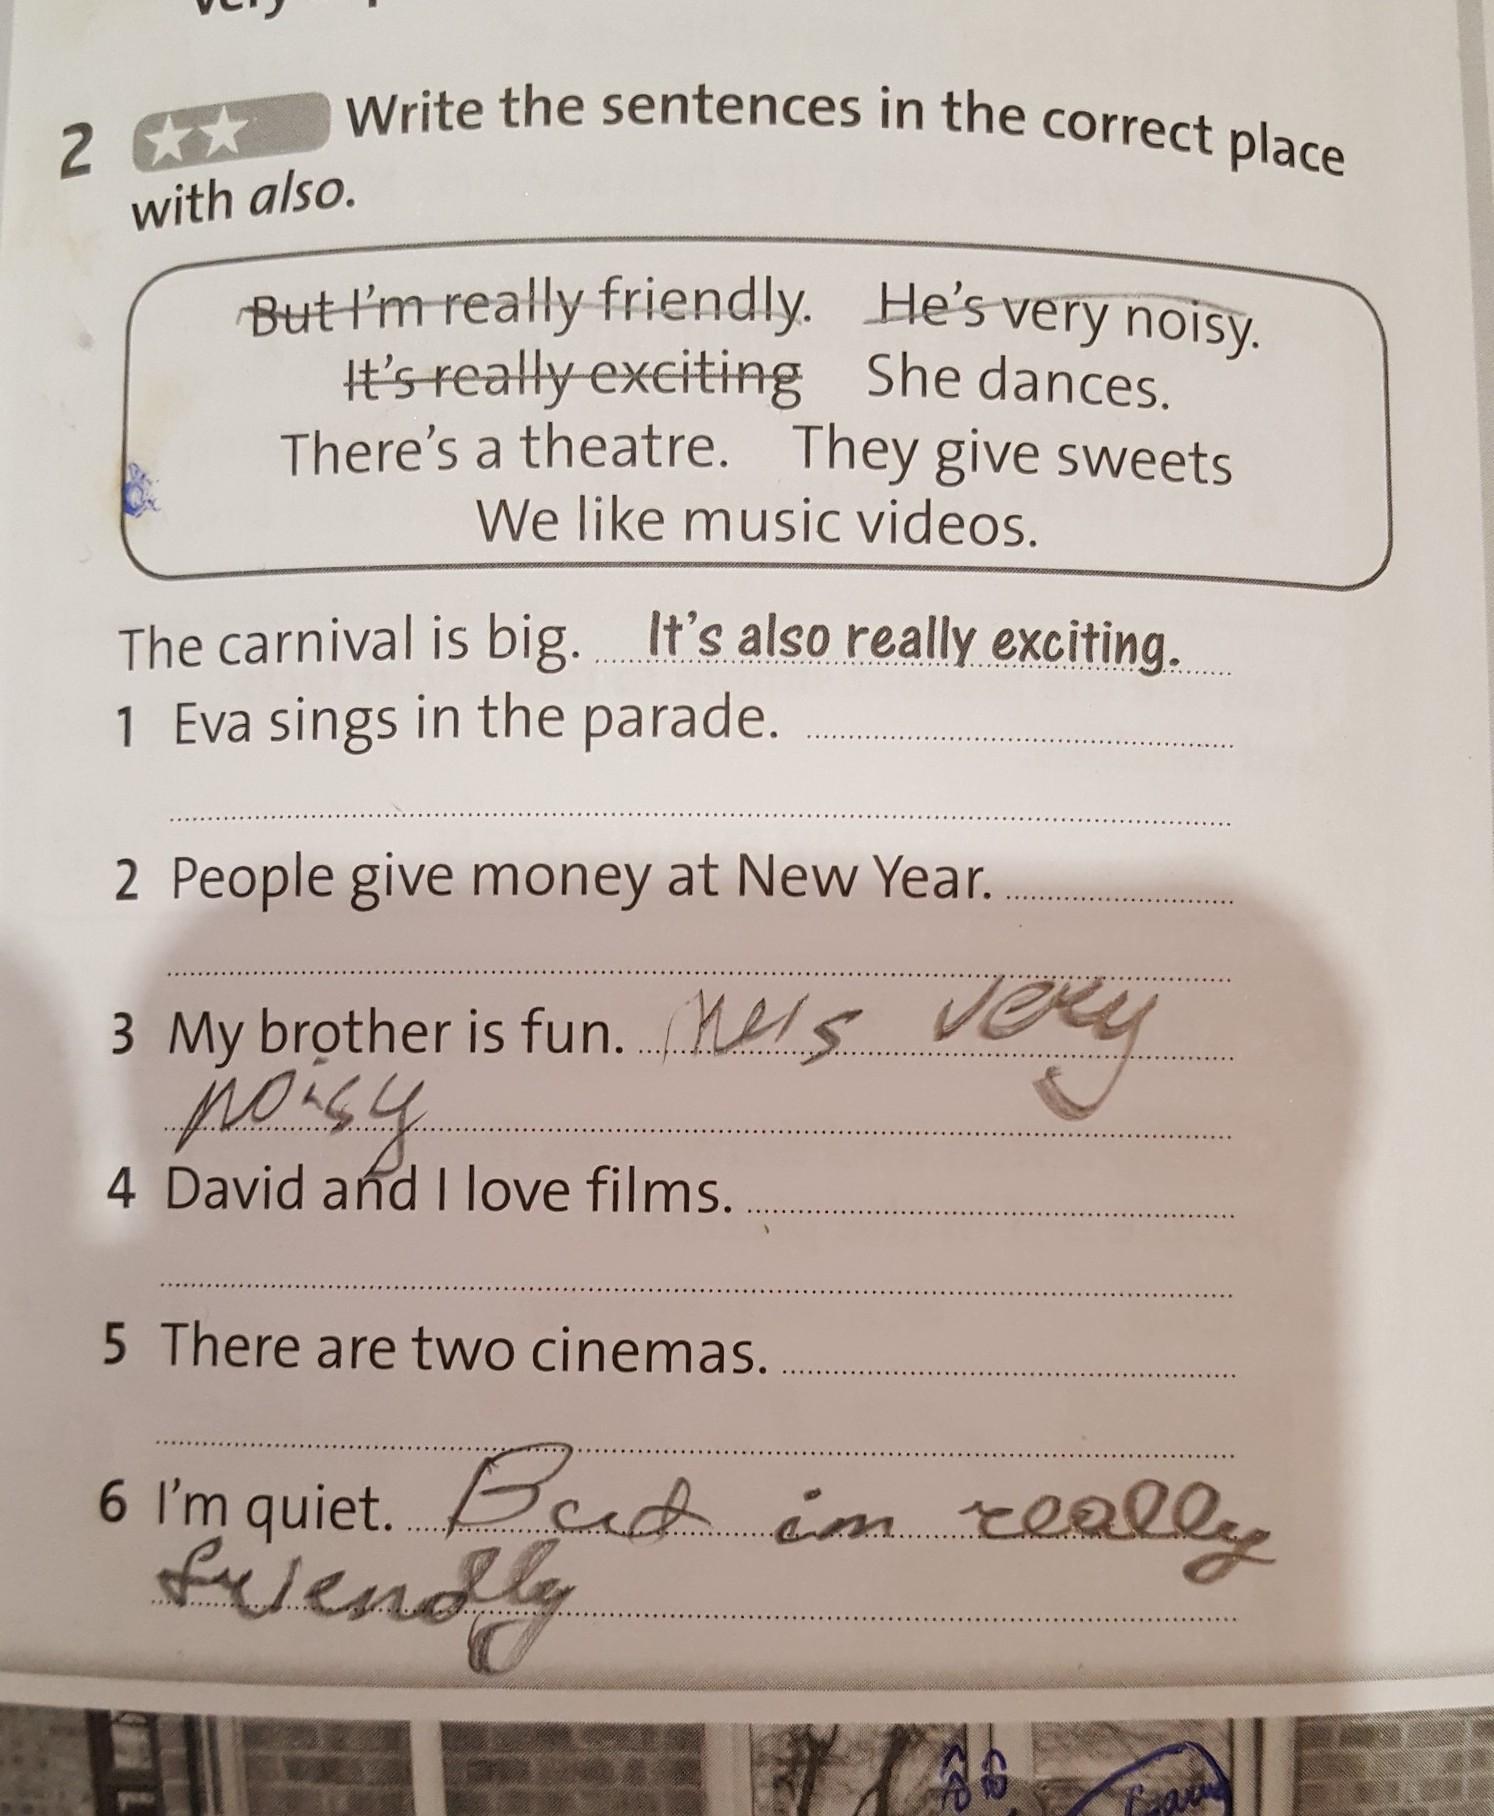 2 Write the sentences in the correct place
with also.
But I'm really friendly. He's very noisy.
It's really exciting She dances.
There's a theatre. They give sweets
We like music videos.
The carnival is big. It's also really exciting.
1 Eva sings in the parade.
2 People give money at New Year.
3 My brother is fun. he's very
noisy
4 David and I love films.
5 There are two cinemas.
6 I'm quiet. But im really
friendly